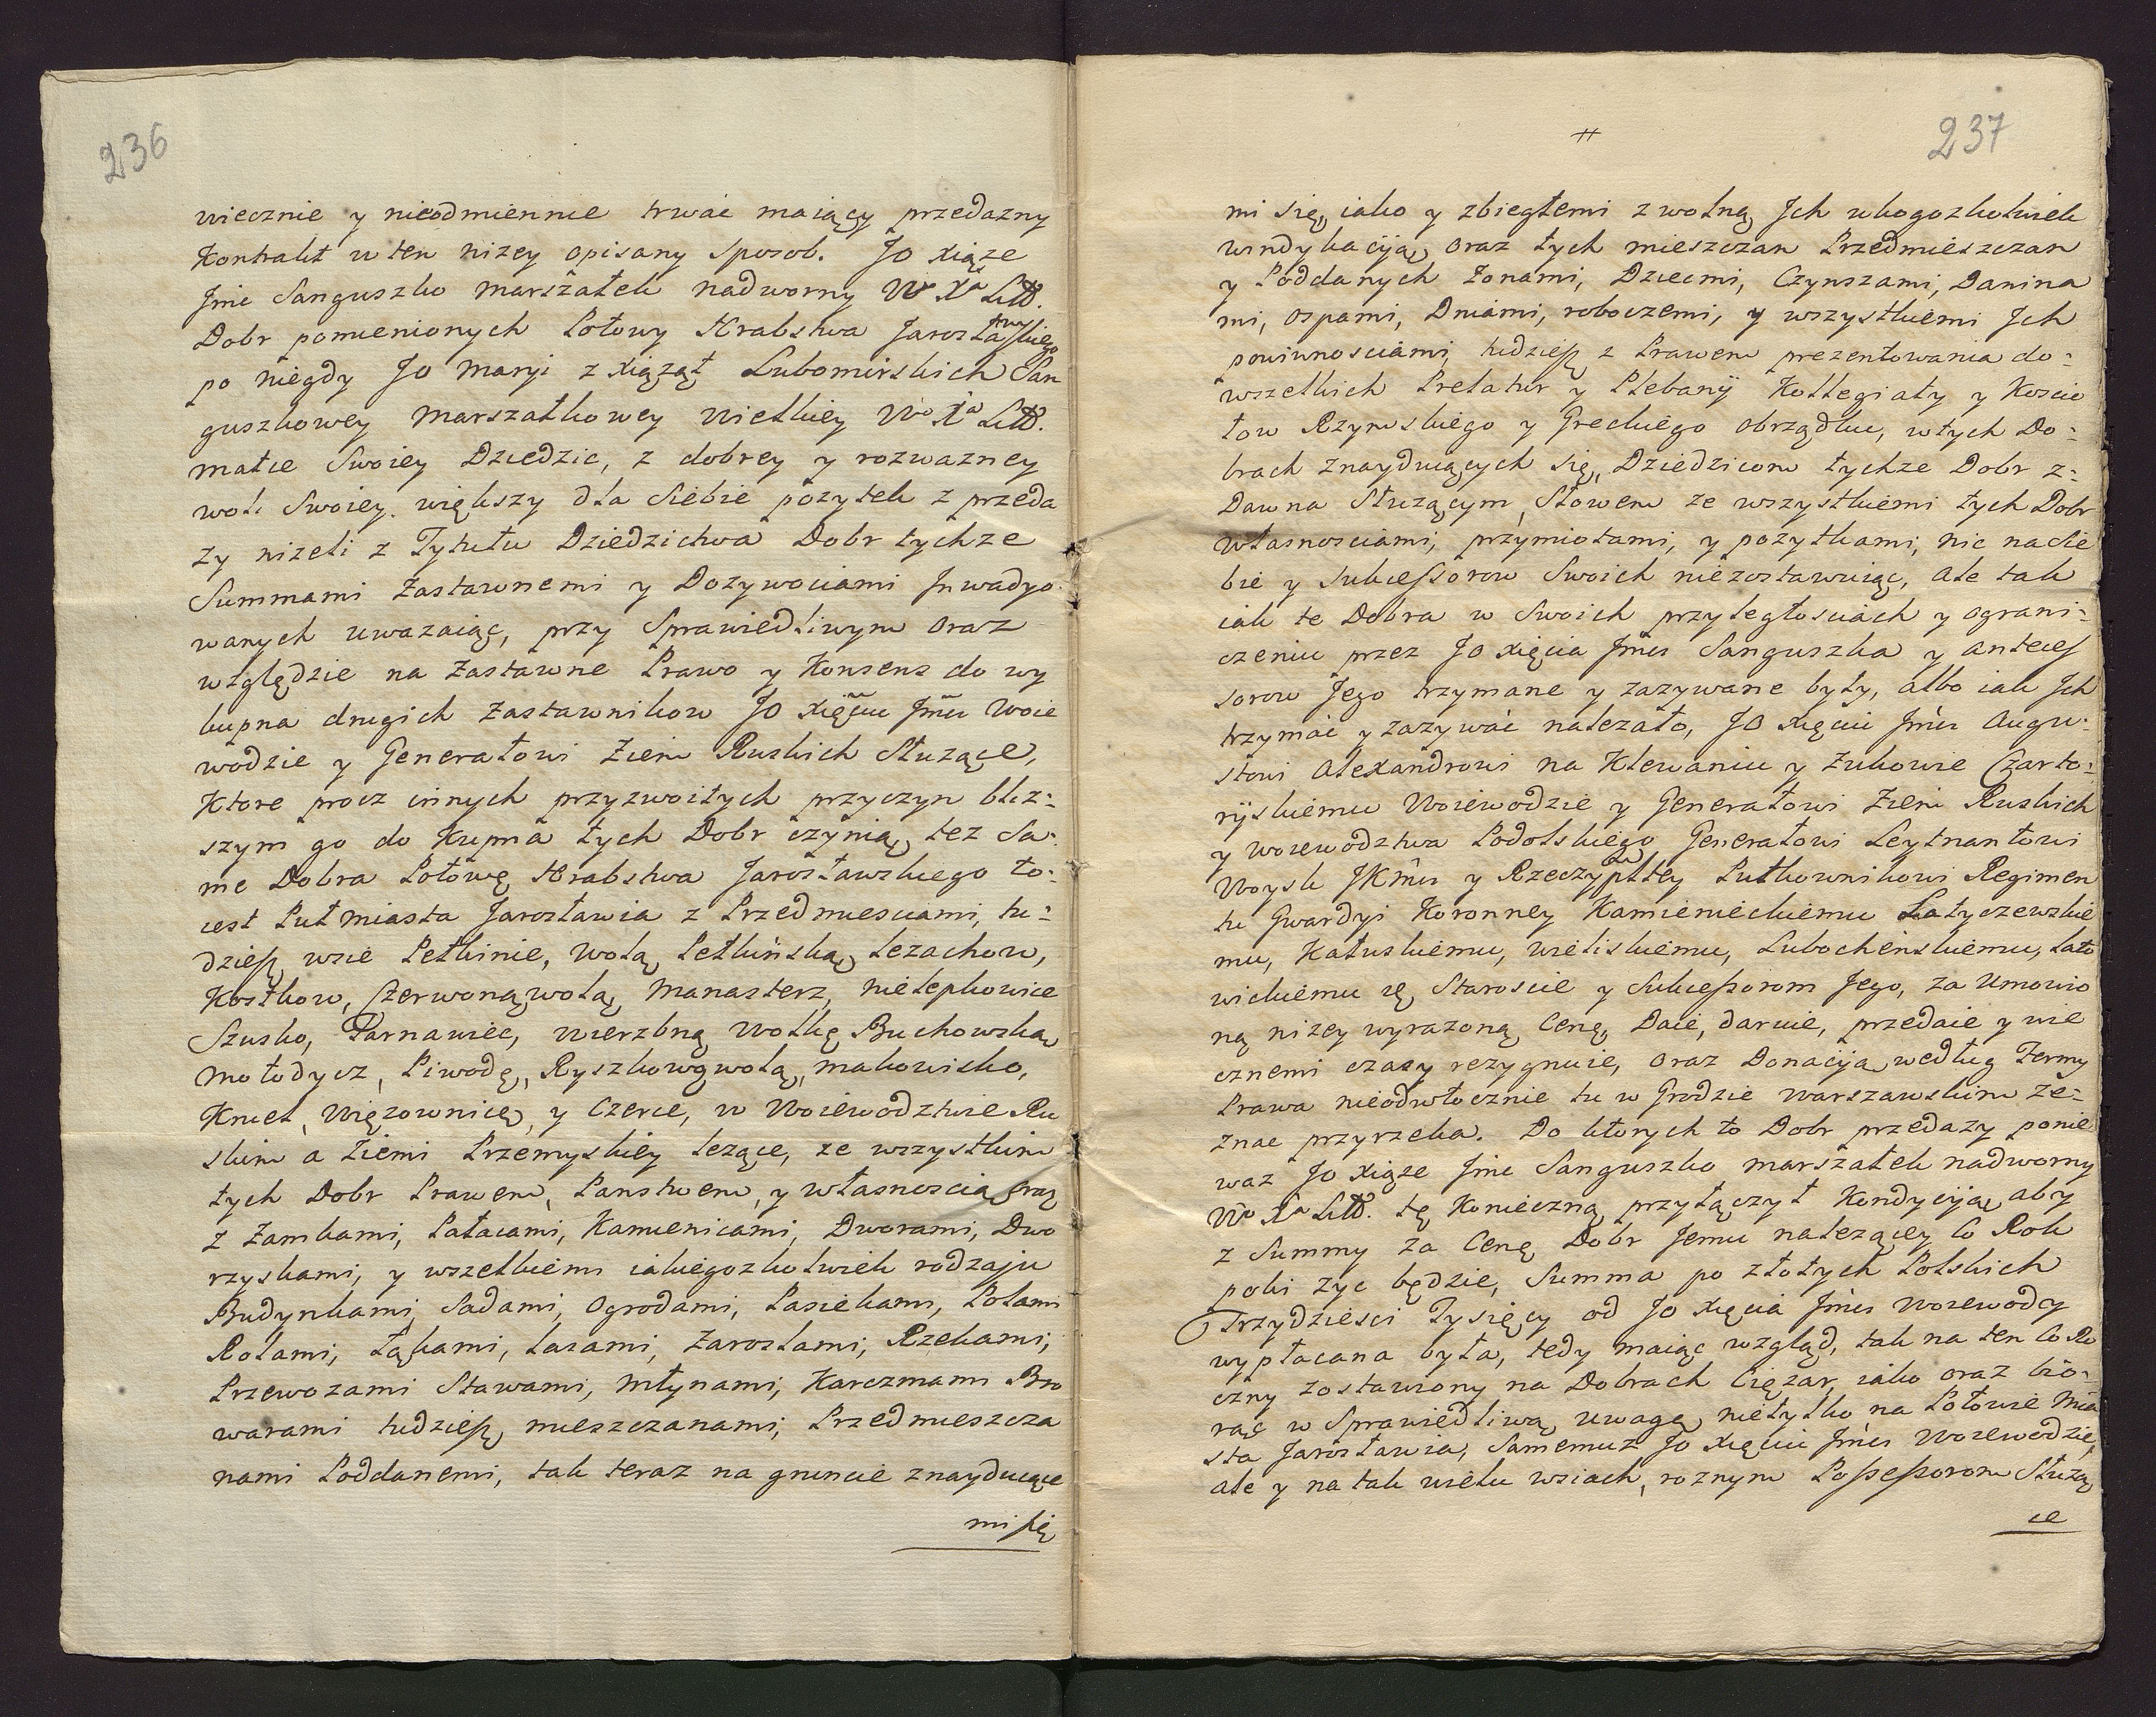 236
wiecznie y nieodmiennie trwać maiący przedazny
Kontrakt w ten nizey opisany Sposob. JO Xiąze
Jmć Sanguszko Marszałek nadworny W° Xa Litt.
Dobr pomienionych Połowy Hrabstwa Jarosławskiego
po niegdy JO Maryi z Xiąząt Lubomirskich San
guszkowey Marszałkowey Wielkiey W° Xa Litt.
matce Swoiey Dziedzic, z dobrey y rozwazney
woli Swoiey większy dla Siebie pozytek z przeda
zy nizeli z Tytułu Dziedzictwa Dobr tychze
Summami Zastawnemi y Dozywociami Inwadyo
wanych uwazaiąc, przy Sprawiedliwym oraz
względzie na Zastawne Prawo y Konsens do wy
kupna drugich Zastawnikow JO Xięciu Jmci Woie
wodzie y Generałowi Ziem Ruskich Służące,
Ktore procz innych przyzwoitych przyczyn bliz-
szym go do Kupna tych Dobr czynią, tez Sa-
me Dobra Połowę Hrabstwa Jarosławskiego to-
iest Puł miasta Jarosławia z Przedmiesciami, tu-
dziesz wsie Pełkinie, Wolą Pełkińską, Lezachow,
Kostkow, Czerwoną wolą, Manasterz, Nielepkowice
Szusko, Tarnawiec, Wierzbną Wolkę Buchowską,
Mołodycz, Piwodę, Ryszkową wolą, Makowisko,
Kruet, Więzownicę, y Czerce, w Woiewodztwie Ru
skim a Ziemi Przemyskiey lezące, ze wszystkim
tych Dobr Prawem, Panstwem, y własnoscią oraz
z Zamkami, Pałacami, Kamienicami, Dworami, Dwo
rzyskami, y wszelkiemi iakiegozkolwiek rodzaju
Budynkami, Sadami, Ogrodami, Pasiekami, Polami
Rolami, Łąkami, Lasami, Zaroslami, Rzekami,
Przewozami Stawami, Młynami, Karczmami Bro
warami tudziesz, mieszczanami, Przedmieszcza
nami Poddanemi, tak teraz na gruncie znayduiące
mi się
#
237
mi się, iako y zbiegłemi z wolną Ich ukogozkolwiek
windykacyją, oraz tych mieszczan Przedmieszczan
y Poddanych Zonami, Dziecmi, Czynszami, Danina
mi, Ospami, Dniami, roboczemi, y wszystkiemi Ich
powinnosciami, tudziesz z Prawem prezentowania do-
wszelkich Prelatur y Plebanij Kollegiaty y Koscio
łow Rzymskiego y Greckiego obrządku, w tych Do-
brach znayduiących się, Dziedzicom tychze Dobr z-
Dawna Słuzącym, Słowem ze wszystkiemi tych Dobr
własnosciami, przymiotami, y pozytkami, nic na Sie
bie y Sukcessorow Swoich niezostawuiąc, ale tak
iak te Dobra w Swoich przyległosciach y ograni-
czeniu przez JO Xięcia Jmci Sanguszka y Anteces
sorow Jego trzymane y zazywane były, albo iak Ich
trzymać y zazywać nalezało, JO Xięciu Jmci Augu-
stowi Alexandrowi na Klewaniu y Zukowie Czarto-
ryiskiemu Woiewodzie y Generałowi Ziem Ruskich
y Woiewodztwa Podolskiego Generałowi Leytnantowi
Woysk JKMci y Rzeczyptley Pułkownikowi Regimen
tu Gwardyi Koronney Kamienieckiemu Latyczewskie
mu, Kałuskiemu, Wieliskiemu, Lubochenskiemu, Lato
wickiemu etc Staroscie y Sukcessorom Jego, za Umowio
ną nizey wyrazoną Cenę, Daie, daruie, przedaie y wie
cznemi czasy rezygnuie, oraz Donacyją według Formy
Prawa nieodwłocznie tu w Grodzie Warszawskim ze-
znac przyrzeka. Do ktorych to Dobr przedazy ponie
waz JO Xiąze Jmć Sanguszko Marszałek nadworny
W° Xa Litt. tę Konieczną przyłączył Kondycyją, aby
z Summy za Cenę Dobr Jemu nalezącey Co Rok
poki zyc będzie, Summa po złotych Polskich
Trzydziesci Tysięcy od JO Xięcia Jmci Woiewody
wypłacana była, tedy maiąc wzgląd, tak na ten Co Ro
czny zostawiony na Dobrach Cięzar, iako oraz bio-
rąc w Sprawiedliwą uwagę, nietylko na Połowie Mia
sta Jarosławia, Samemuz JO Xięciu Jmci Woiewodzie,
ale y na tak wielu wsiach, roznym Possessorom Słuzą
ce